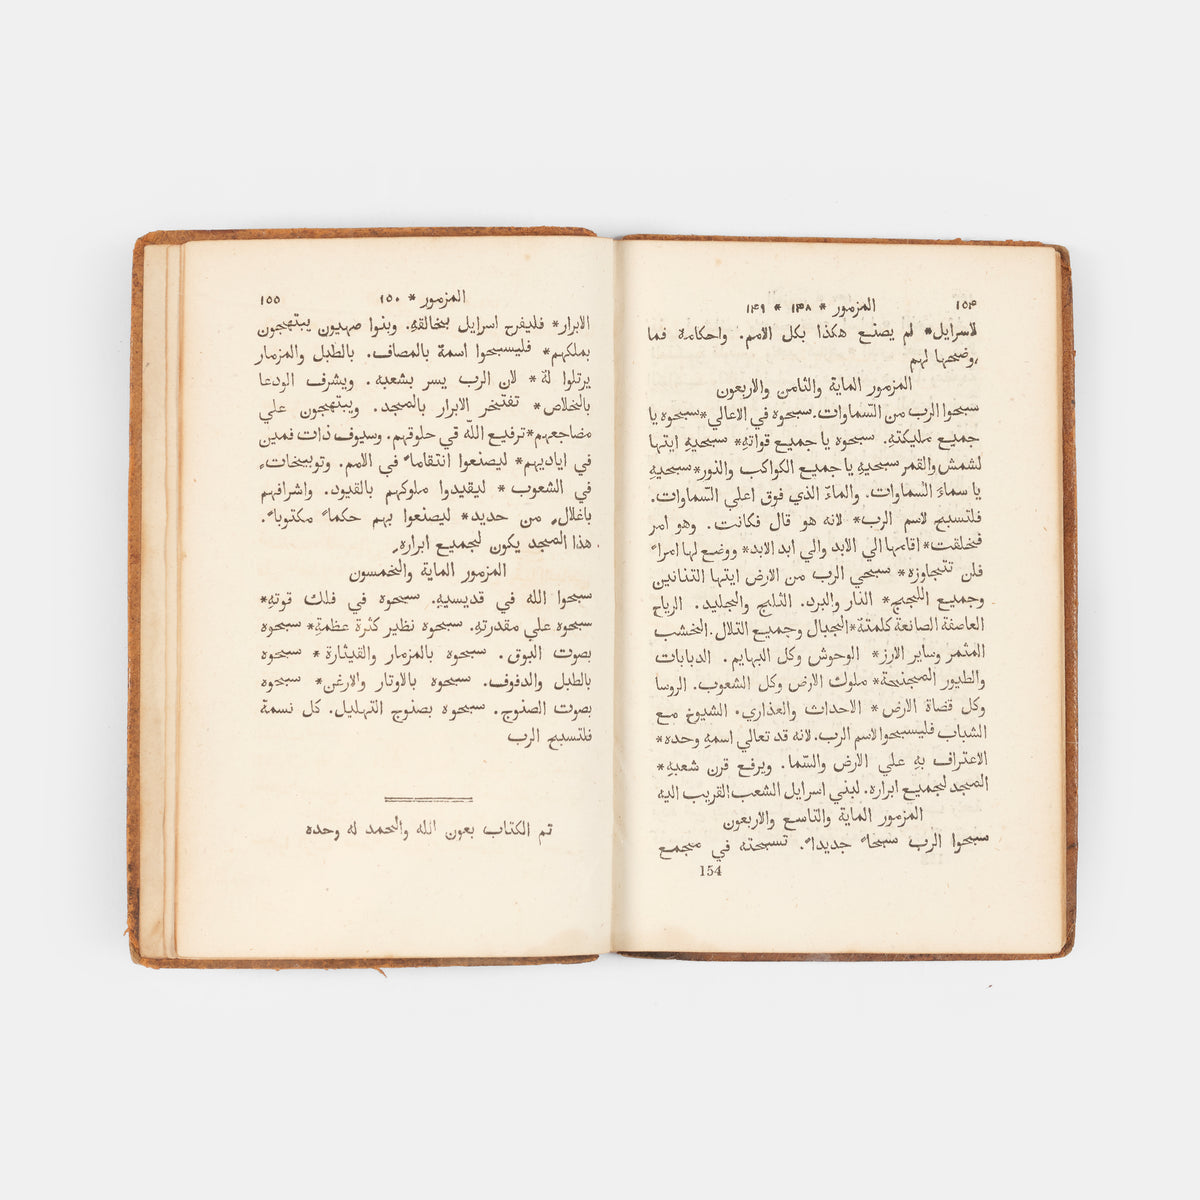 ١٥٤ المزمور * ١٤٨ * ١٤٩
لاسرايل* لم يصنع هكذا بكل الامم. واحكامة فما
وضحها لهم
المزمور الماية والثامن والاربعون
سبحوا الرب من السّماوات. سبحوه في الاعالي* سبحوه يا
جميع مليكتهِ. سبحوه يا جميع قواتهِ* سبحيهِ ايتها
لشمش والقمر سبحيهِ يا جميع الكواكب والنور* سبحيهِ
يا سماءَ السّماوات. والماءُ الذي فوق اعلي السّماوات.
فلتسبح لاسم الرب* لانه هو قال فكانت. وهو امر
فخلقت* اقامها الي الابد والي ابد الابد* ووضع لها امراً
فلن تتجاوزه* سبحي الرب من الارض ايتها التنانين
وجميع اللجج* النار والبرد. الثليج والجليد. الرياح
العاصفة الصانعة كلمتهُ* الجبال وجميع التلال. الخشب
المثمر وساير الارز* الوحوش وكل البهايم. الدبابات
والطيور المجنحة* ملوك الارض وكل الشعوب. الروسا
وكل قضاة الارض* الاحداث والعذاري. الشيوخ مع
الشباب فليسبحوا لاسم الرب. لانه قد تعالي اسمهِ وحده*
الاعتراف بهِ علي الارض والسّما. ويرفع قرن شعبهِ*
المجد لجميع ابراره. لبني اسرايل الشعب القريب اليه
المزمور الماية والتاسع والاربعون
سبحوا الرب سبحاً جديداً. تسبحته في مجمع
154
المزمور * ١٥٠ ١٥٥
الابرار* فليفرح اسرايل بخالقهِ. وبنوا صهيون يبتهجون
بملكهم* فليسبحوا اسمة بالمصاف. بالطبل والمزمار
يرتلوا لة* لان الرب يسر بشعبه. ويشرف الودعا
بالخلاص* تفتخر الابرار بالمجد. ويبتهجون علي
مضاجعهم* ترفيع اللّه قي حلوقهم. وسيوف ذات فمين
في اياديهم* ليصنعوا انتقاماً في الامم. وتوبيخاتٍ
في الشعوب* ليقيدوا ملوكهم بالقيود. واشرافهم
باغلالٍ من حديد* ليصنعوا بهم حكماً مكتوباً.
هذا المجد يكون لجميع ابرارهِ
المزمور الماية والخمسون
سبحوا الله في قديسيهِ. سبحوه في فلك قوتهِ*
سبحوه علي مقدرتهِ. سبحوه نظير كثرة عظمةِ* سبحوه
بصوت البوق. سبحوه بالمزمار والقيثارة* سبحوه
بالطبل والدفوف. سبحوه بالاوتار والارغن* سبحوه
بصوت الصنوج. سبحوه بصنوج التهليل. كل نسمة
فلتسبح الرب
تم الكتاب بعون الله والحمد له وحده